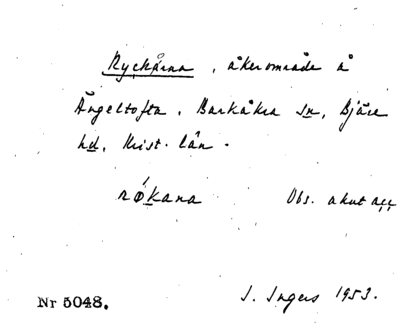 Ryckårna, åkerområde å
Ängeltofta, Barkåkra sn, Bjäre
hd, Krist. län.
rǿkana Obs. akut acc
Nr 5048. I. Ingers 1953.